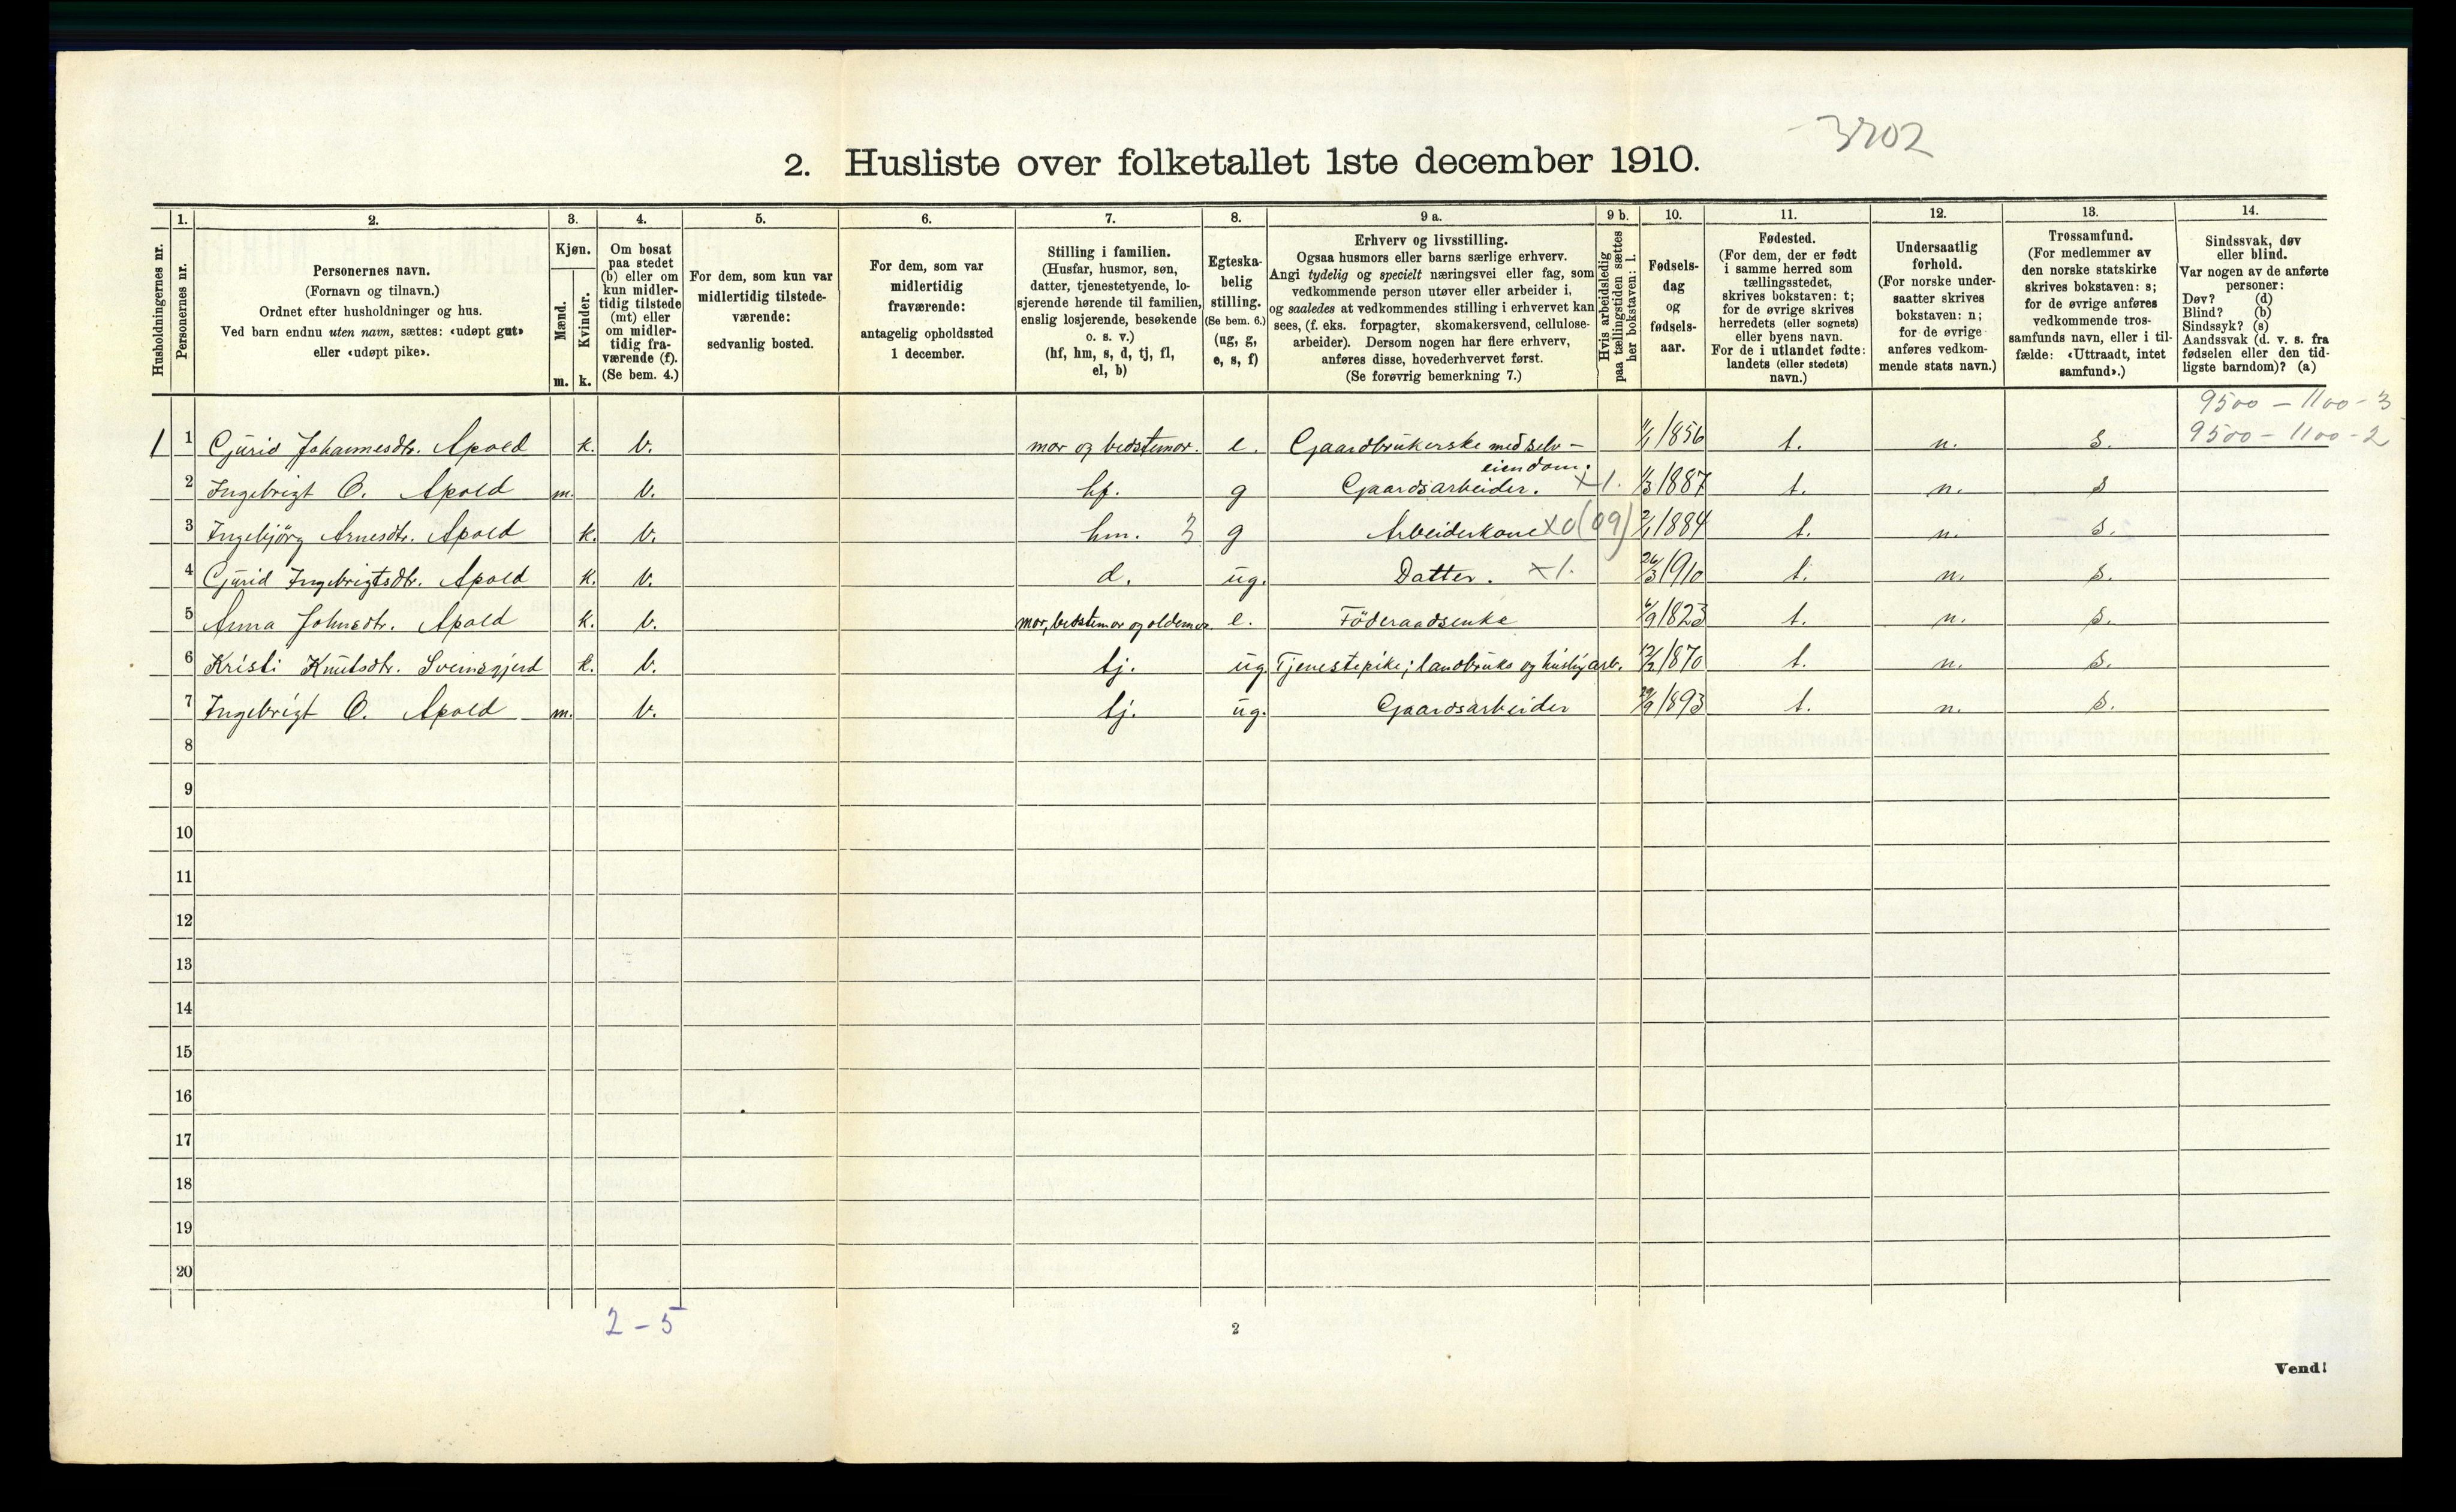 3702
2. Husliste over folketallet 1ste december 1910.
Husholdningernes nr.
1.
Personernes nr.
2.
Personernes navn.
(Fornavn og tilnavn.)
Ordnet efter husholdninger og hus.
Ved barn endnu uten navn, sættes: «udøpt gut»
eller «udøpt pike».
3.
Kjøn.
Mænd.
Kvinder.
m. k.
4.
Om bosat
paa stedet
(b) eller om
kun midler-
tidig tilstede
(mt) eller
om midler-
tidig fra-
værende (f).
(Se bem. 4.)
5.
For dem, som kun var
midlertidig tilstede-
værende:
sedvanlig bosted.
6.
For dem, som var
midlertidig
fraværende:
antagelig opholdssted
1 december.
7.
Stilling i familien.
(Husfar, husmor, søn,
datter, tjenestetyende, lo-
sjerende hørende til familien,
enslig losjerende, besøkende
o. s. v.)
(hf, hm, s, d, tj, fl,
el, b)
8.
Egteska-
belig
stilling.
(Se bem. 6.)
(ug, g,
e, s, f)
9 a.
Erhverv og livsstilling.
Ogsaa husmors eller barns særlige erhverv.
Angi tydelig og specielt næringsvei eller fag, som
vedkommende person utøver eller arbeider i,
og saaledes at vedkommendes stilling i erhvervet kan
sees, (f. eks. forpagter, skomakersvend, cellulose-
arbeider). Dersom nogen har flere erhverv,
anføres disse, hovederhvervet først.
(Se forøvrig bemerkning 7.)
9 b.
Hvis arbeidsledig
paa tællingstiden sættes
her bokstaven: l.
10.
Fødsels-
dag
og
fødsels-
aar.
11.
Fødested.
(For dem, der er født
i samme herred som
tællingsstedet,
skrives bokstaven: t;
for de øvrige skrives
herredets (eller sognets)
eller byens navn.
For de i utlandet fødte:
landets (eller stedets)
navn.)
12.
Undersaatlig
forhold.
(For norske under-
saatter skrives
bokstaven: n;
for de øvrige
anføres vedkom-
mende stats navn.)
13.
Trossamfund.
(For medlemmer av
den norske statskirke
skrives bokstaven: s;
for de øvrige anføres
vedkommende tros-
samfunds navn, eller i til-
fælde: «Uttraadt, intet
samfund».)
14.
Sindssvak, døv
eller blind.
Var nogen av de anførte
personer:
Døv? (d)
Blind? (b)
Sindssyk? (s)
Aandssvak (d. v. s. fra
fødselen eller den tid-
ligste barndom)? (a)
9500 - 1100 - 3
9500 - 1100 - 2
1 1 Gjurid Johannesdtr. Apold k. b. mor og bedstemor. e. Gaardbrukerske med selv-
eiendom. 1856 t. n. s.
2 Ingebrigt O. Apold m. b. hf. g Gaardsarbeider. x 1. 1/3 1887 t. n. s
3 Ingebjörg Arnesdtr. Apold k. b. hm. 3 g Arbeiderkone x0(09) 2/1 1884 t. n. s.
4 Gjurid Ingebrigtsdtr. Apold k. b. d. ug. Datter. x1. 26/3 1910 t. n. s.
5 Anna Johnsdtr. Apold k. b. mor, bedstemor og oldemor e. Föderaadsenke 6/9 1823 t. n. s.
6 Kristi Knutsdtr. Sveinsgjerd k. b. tj. ug. Tjenestepike; landbruks og husligarb. 12/2 1870 t. n. s.
7 Ingebrigt O. Apold m. b. tj. ug. Gaardsarbeider 29/9 1893 t. n. s.
8
9
10
11
12
13
14
15
16
17
18
19
20
2 - 5
2
Vend!